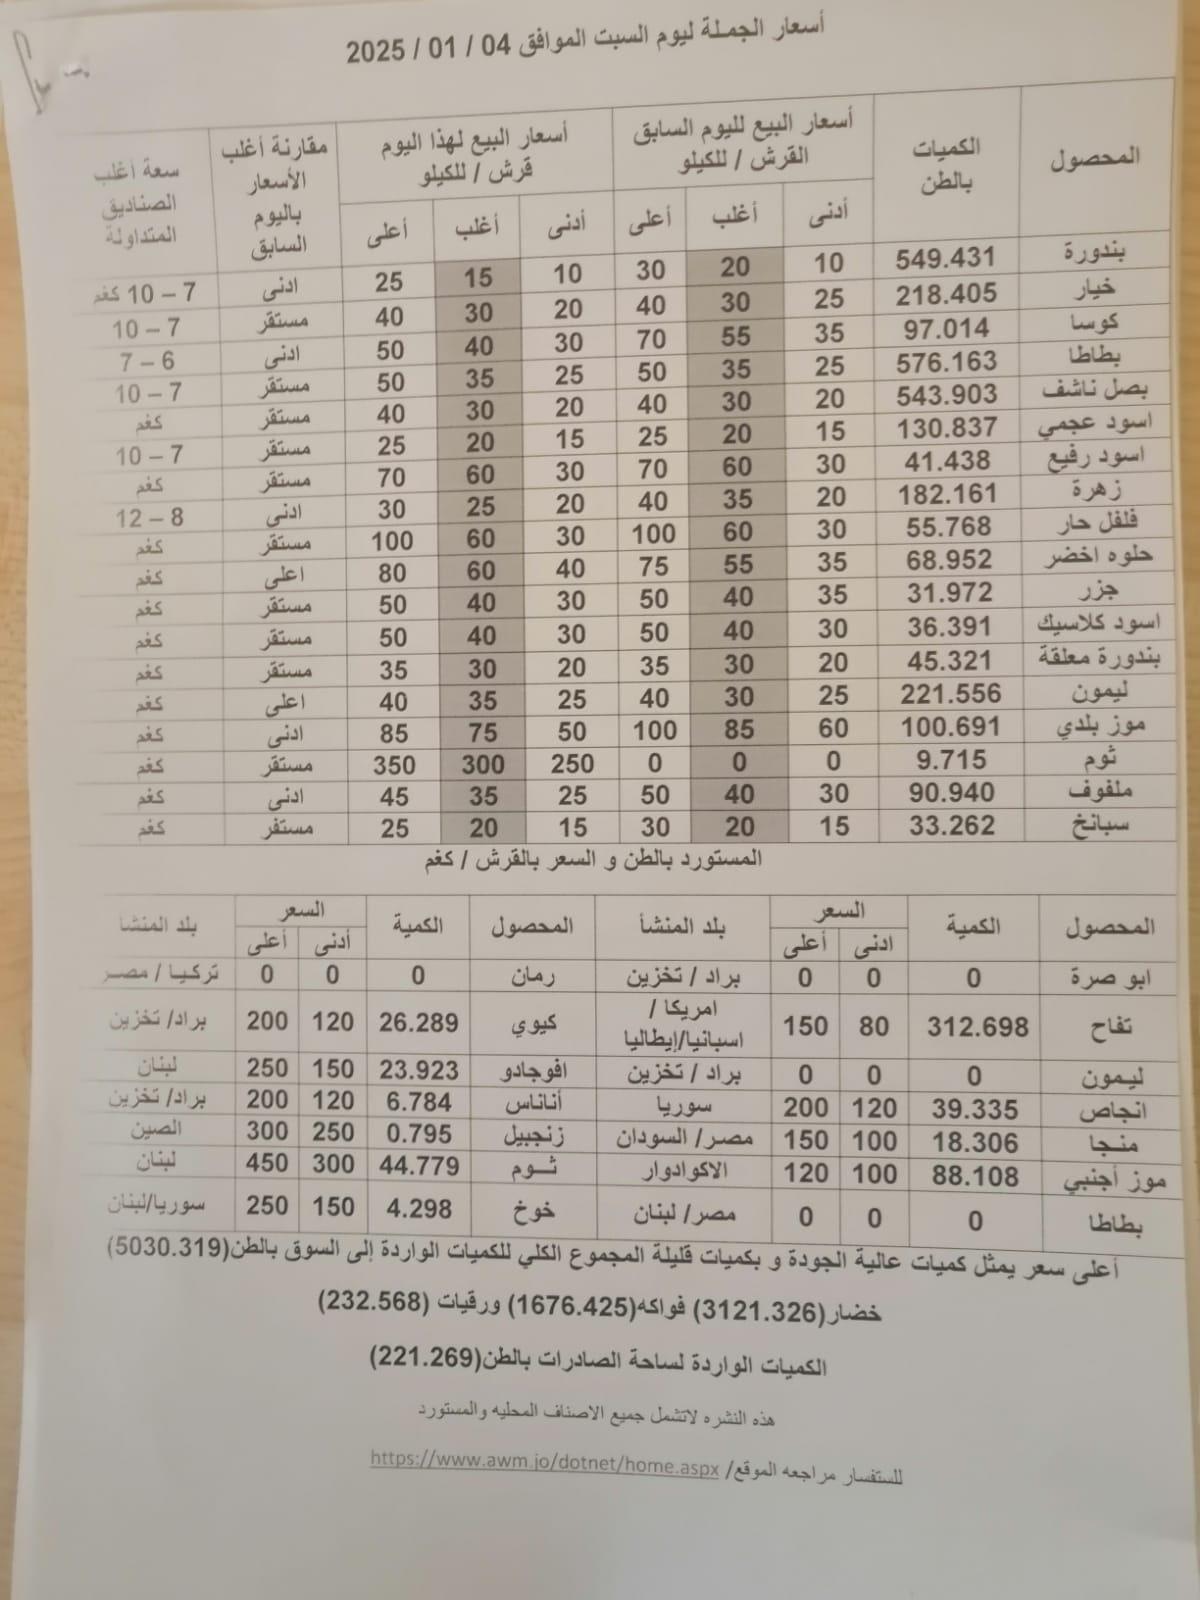 أسعار الجملة ليوم السبت الموافق 04 / 01 / 2025
المحصول الكميات بالطن أسعار البيع لليوم السابق القرش / للكيلو أسعار البيع لهذا اليوم قرش / للكيلو مقارنة أغلب الأسعار باليوم السابق سعة أغلب الصناديق المتداولة
أدنى أغلب أعلى أدنى أغلب أعلى
بندورة 549.431 10 20 30 10 15 25 ادنى 7 – 10 كغم
خيار 218.405 25 30 40 20 30 40 مستقر 7 – 10
كوسا 97.014 35 55 70 30 40 50 ادنى 6 – 7
بطاطا 576.163 25 35 50 25 35 50 مستقر 7 – 10
بصل ناشف 543.903 20 30 40 20 30 40 مستقر كغم
اسود عجمي 130.837 15 20 25 15 20 25 مستقر 7 – 10
اسود رفيع 41.438 30 60 70 30 60 70 مستقر كغم
زهرة 182.161 20 35 40 20 25 30 ادنى 8 – 12
فلفل حار 55.768 30 60 100 30 60 100 مستقر كغم
حلوه اخضر 68.952 35 55 75 40 60 80 اعلى كغم
جزر 31.972 35 40 50 30 40 50 مستقر كغم
اسود كلاسيك 36.391 30 40 50 30 40 50 مستقر كغم
بندورة معلقة 45.321 20 30 35 20 30 35 مستقر كغم
ليمون 221.556 25 30 40 25 35 40 اعلى كغم
موز بلدي 100.691 60 85 100 50 75 85 ادنى كغم
ثوم 9.715 0 0 0 250 300 350 مستقر كغم
ملفوف 90.940 30 40 50 25 35 45 ادنى كغم
سبانخ 33.262 15 20 30 15 20 25 مستفر كغم
المستورد بالطن و السعر بالقرش / كغم
المحصول الكمية السعر بلد المنشأ المحصول الكمية السعر بلد المنشا
ادنى أعلى أدنى أعلى
ابو صرة 0 0 0 براد / تخزين رمان 0 0 0 تركيا / مصر
تفاح 312.698 80 150 امريكا / اسبانيا/إيطاليا كيوي 26.289 120 200 براد/ تخزين
ليمون 0 0 0 براد / تخزين افوجادو 23.923 150 250 لبنان
انجاص 39.335 120 200 سوريا أناناس 6.784 120 200 براد/ تخزين
منجا 18.306 100 150 مصر/ السودان زنجبيل 0.795 250 300 الصين
موز أجنبي 88.108 100 120 الاكوادوار ثـــوم 44.779 300 450 لبنان
بطاطا 0 0 0 مصر/ لبنان خوخ 4.298 150 250 سوريا/لبنان
أعلى سعر يمثل كميات عالية الجودة و بكميات قليلة المجموع الكلي للكميات الواردة إلى السوق بالطن(5030.319)
خضار(3121.326) فواكه(1676.425) ورقيات (232.568)
الكميات الواردة لساحة الصادرات بالطن(221.269)
هذه النشره لاتشمل جميع الاصناف المحليه والمستورد
للستفسار مراجعه الموقع/ https://www.awm.jo/dotnet/home.aspx